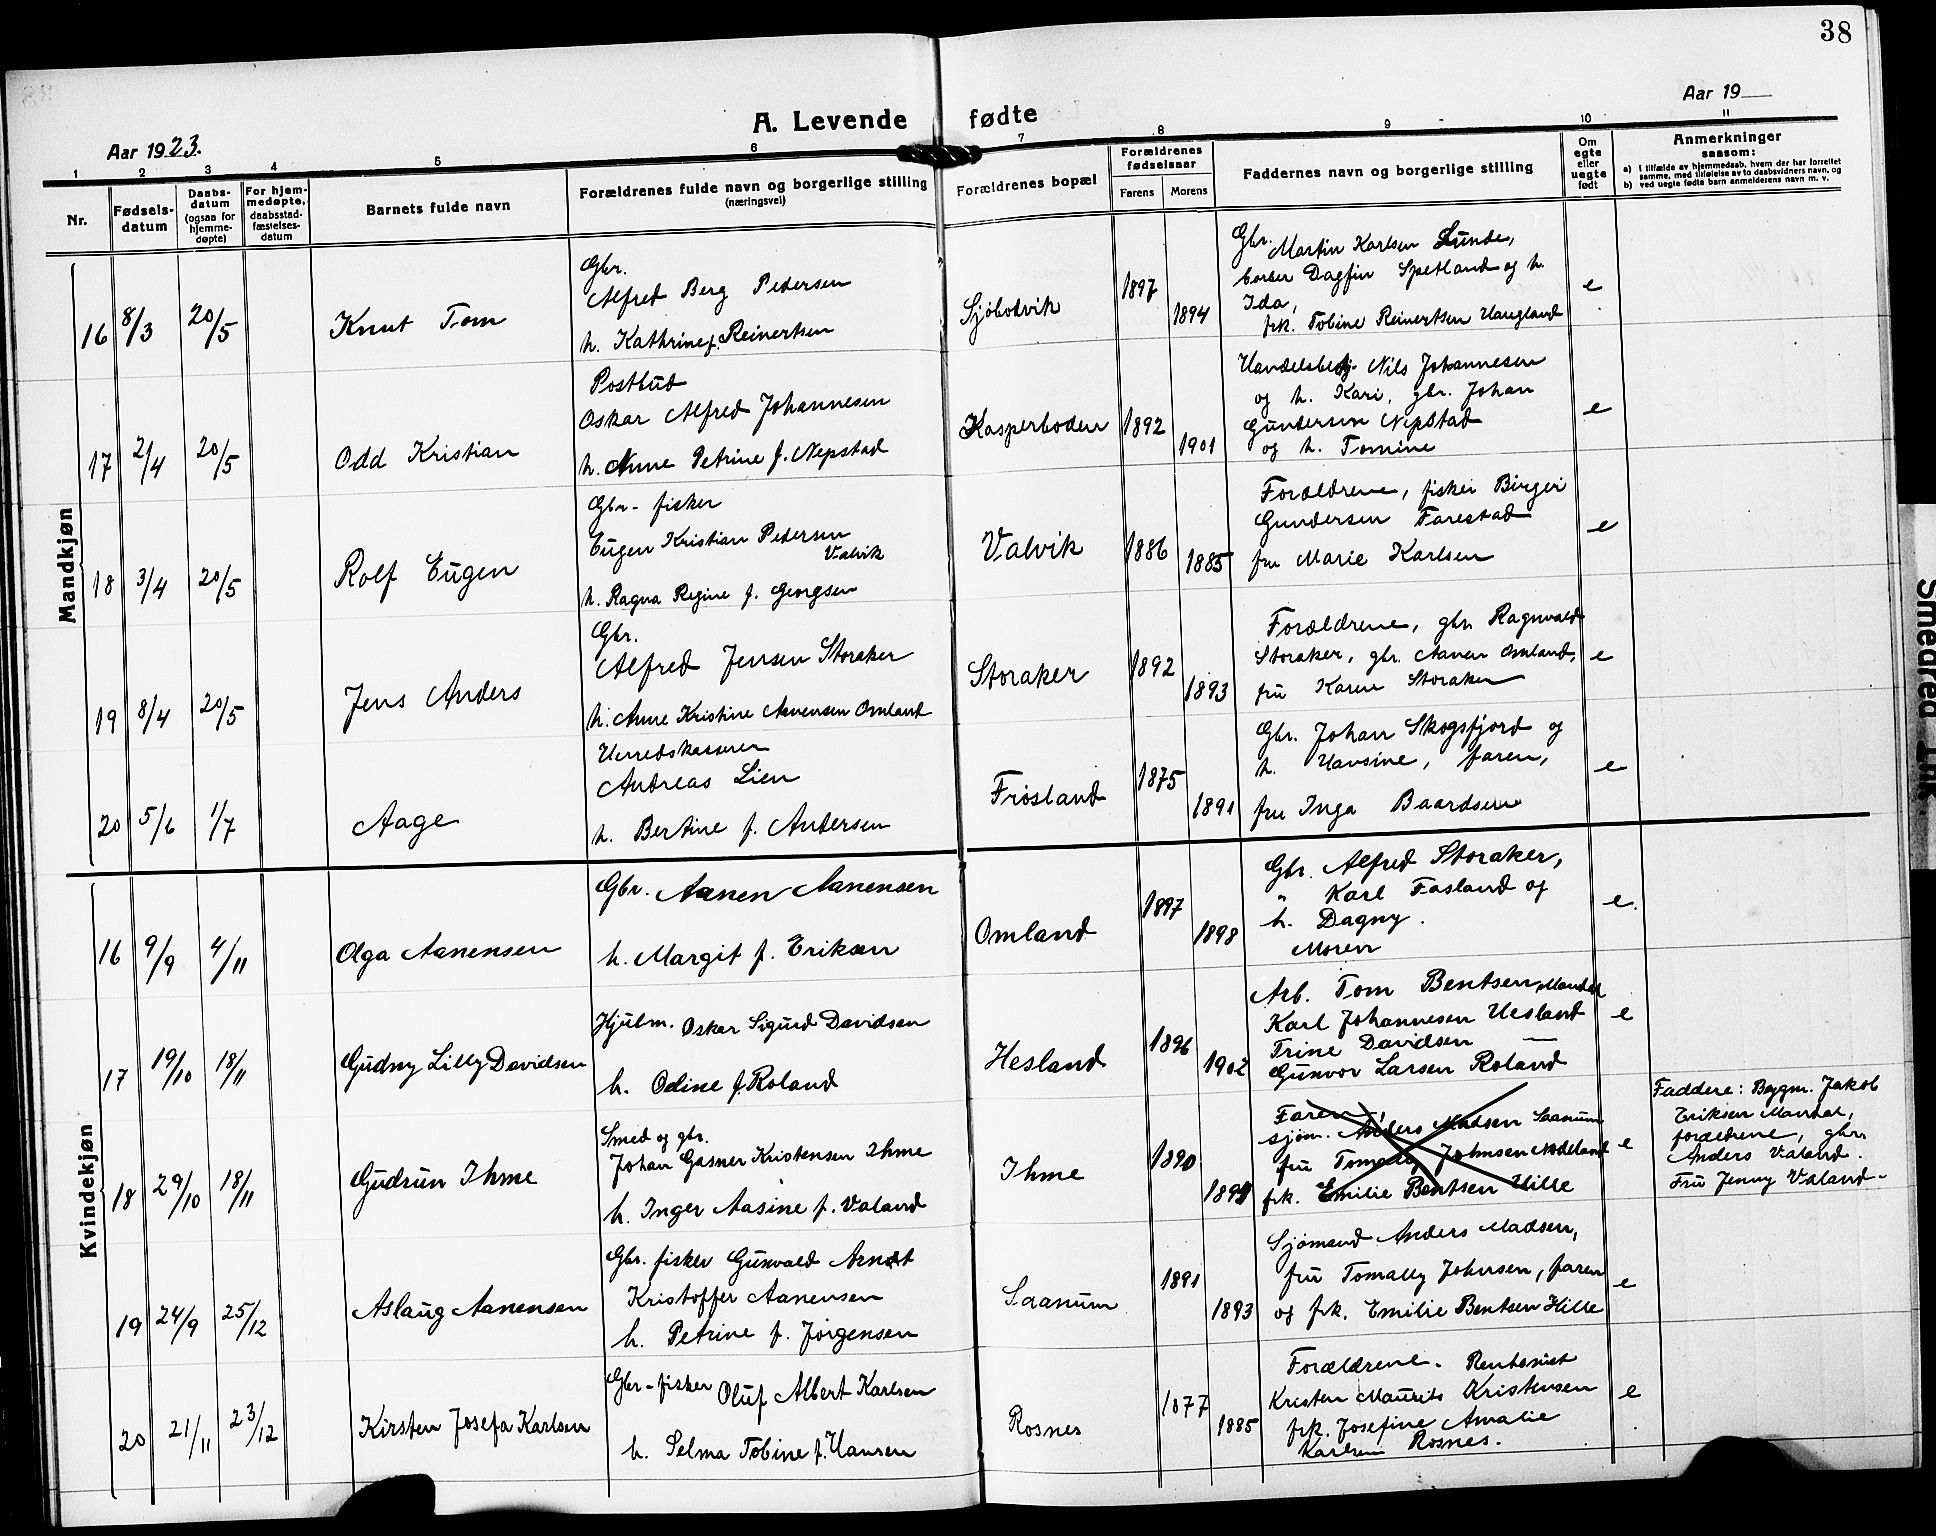 38
A. Levende fødte
Aar 1923.
Aar 19
1 2 3 4 5 6 7 8 9 10 11
Nr.
Fødsels-
datum
Daabs-
datum
(ogsaa for
hjemme-
døpte)
For hjem-
medøpte,
daabsstad-
fæstelses-
datum
Barnets fulde navn
Forældrenes fulde navn og borgerlige stilling
(næringsvei)
Forældrenes bopæl
Forældrenes
fødselsaar
Farens
Morens
Faddernes navn og borgerlige stilling
Om
egte
eller
uegte
født
Anmerkninger
saasom:
a) i tilfælde av hjemmedaab, hvem der har forrettet
samme, med tilføielse av to daabsvidners navn, og
b) ved uegte fødte barn anmelderens navn m. v.
Mandkjøn
16 8/3 20/5
Knut Tom
Gbr.
Alfred Berg Pedersen
h. Kathrine f. Reinertsen
Sjøbodvik
1897
1894
Gbr. Martin Karlsen Lunde,
Dagfin Spetland og h.
Ida,
frk. Tobine Reinertsen Haugland
e
17 2/4 20/5
Odd Kristian
Postbud
Oskar Alfred Johannesen
h. Anne Petrine f. Nepstad
Kasperboden
1892
1901
Handelsbetj. Nils Johannesen
og h. Kari, gbr. Johan
Gundersen Nepstad
og h. Tomine
e
18 3/4 20/5
Rolf Eugen
Gbr- fisker
Eugen Kristian Pedersen
Valvik
h. Ragna Regine f. Georgsen
Valvik
1886
1885
Forældrene, fisker Birger
Gundersen Farestad
fru Marie Karlsen
e
19 8/4 20/5
Jens Anders
Gbr.
Alfred Jensen Storaker
h. Anne Kristine Aanensen Omland
Storaker
1892
1893
Forældrene, gbr. Ragnvald
Storaker, gbr. Aanen Omland,
fru Karen Storaker
e
20 5/6 1/7
Aage
Herredskasserer
Andreas Lien
h. Bertine f. Andersen
Frøsland
1875
1891
Gbr. Johan Skogsfjord og
h. Hansine, faren,
fru Inga Baardsen
e
Kvindekjøn
16 9/9 4/11
Olga Aanensen
Gbr. Aanen Aanensen
h. Margit f. Eriksen
Omland
1897
1898
Gbr. Alfred Storaker,
" Karl Fasland og
h. Dagny.
Moren
e.
17 19/10 18/11
Gudny Lilly Davidsen
Hjulm. Oskar Sigurd Davidsen
h. Odine f. Roland
Hesland
1896
1902
Arb. Tom Bentsen, Mandal
Karl Johannesen Hesland
Trine Davidsen —
Gunvor Larsen Roland
e
18 29/10 18/11
Gudrun Ihme
Smed og gbr.
Johan Gasner Kristensen Ihme
h. Inger Aasine f. Valand
Ihme
1890
1891
Faren,
sjøm. Anders Madsen Saanum
fru Tomally Johnsen Nodeland
frk. Emilie Bentsen Hille
e
Faddere: Bygm. Jakob
Eriksen Mandal,
forældrene, gbr.
Anders Valand.
Fru Jenny Valand-
19 24/9 25/12
Aslaug Aanensen
Gbr. fisker Gunvald Arndt
Kristoffer Aanensen
h. Petrine f. Jørgensen
Saanum
1891
1893
Sjømand Anders Madsen,
fru Tomally Johnsen, faren
og frk. Emilie Bentsen Hille
e
20 21/11 23/12
Kirsten Josefa Karlsen
Gbr-fisker Oluf Albert Karlsen
h. Selma Tobine f. Hansen
Rosnes
1877
1885
Forældrene. Rentenist
Kristen Maurits Kristensen
frk. Josefine Amalie
Karlsen Rosnes.
e